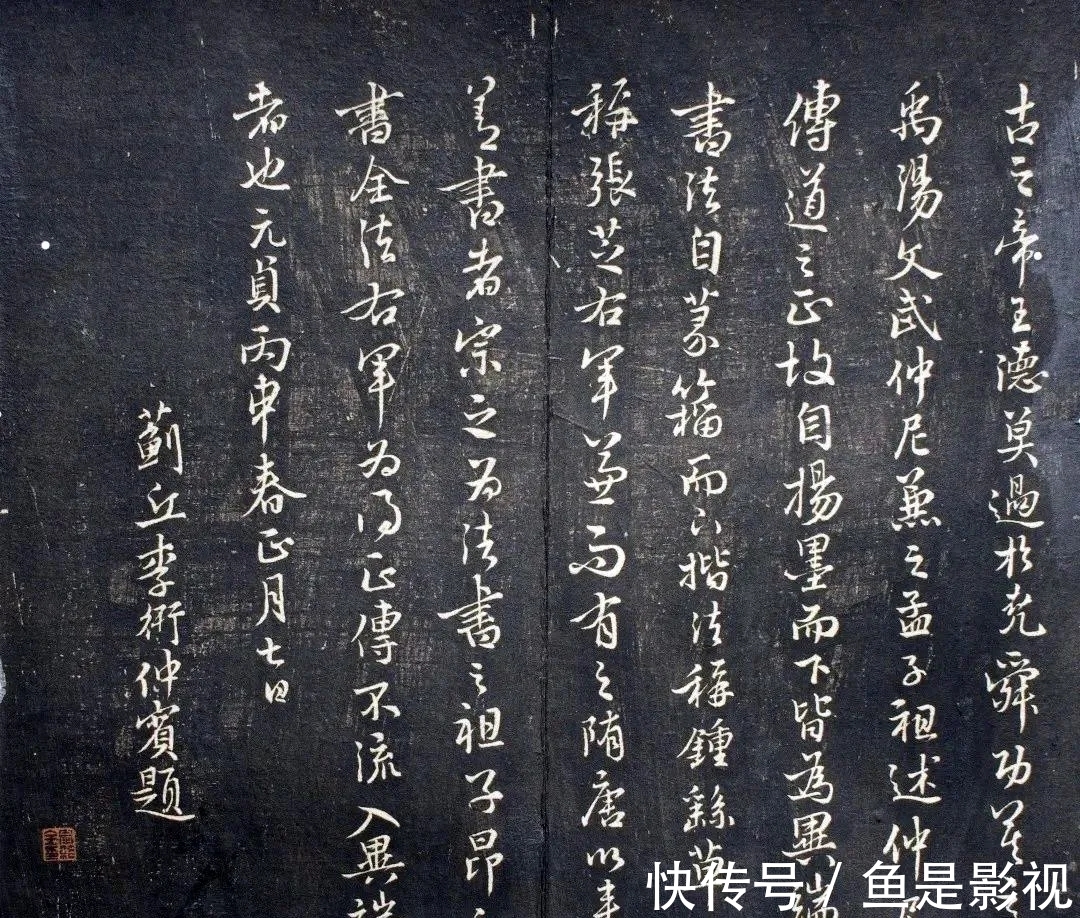 古之帝王德莫過於堯舜功莫
禹湯文武仲尼兼之孟子祖述仲
傳道之正故自揚墨而下皆為異端
書法自篆籀而下楷法稱鍾繇草
稱張芝右軍兼而有之隋唐以來
善書者宗之為法書之祖子昂之
書全法右軍為得正傳不流入異端
者也元貞丙申春正月七日
薊丘李衎仲賓題
快传号 / 鱼是影视